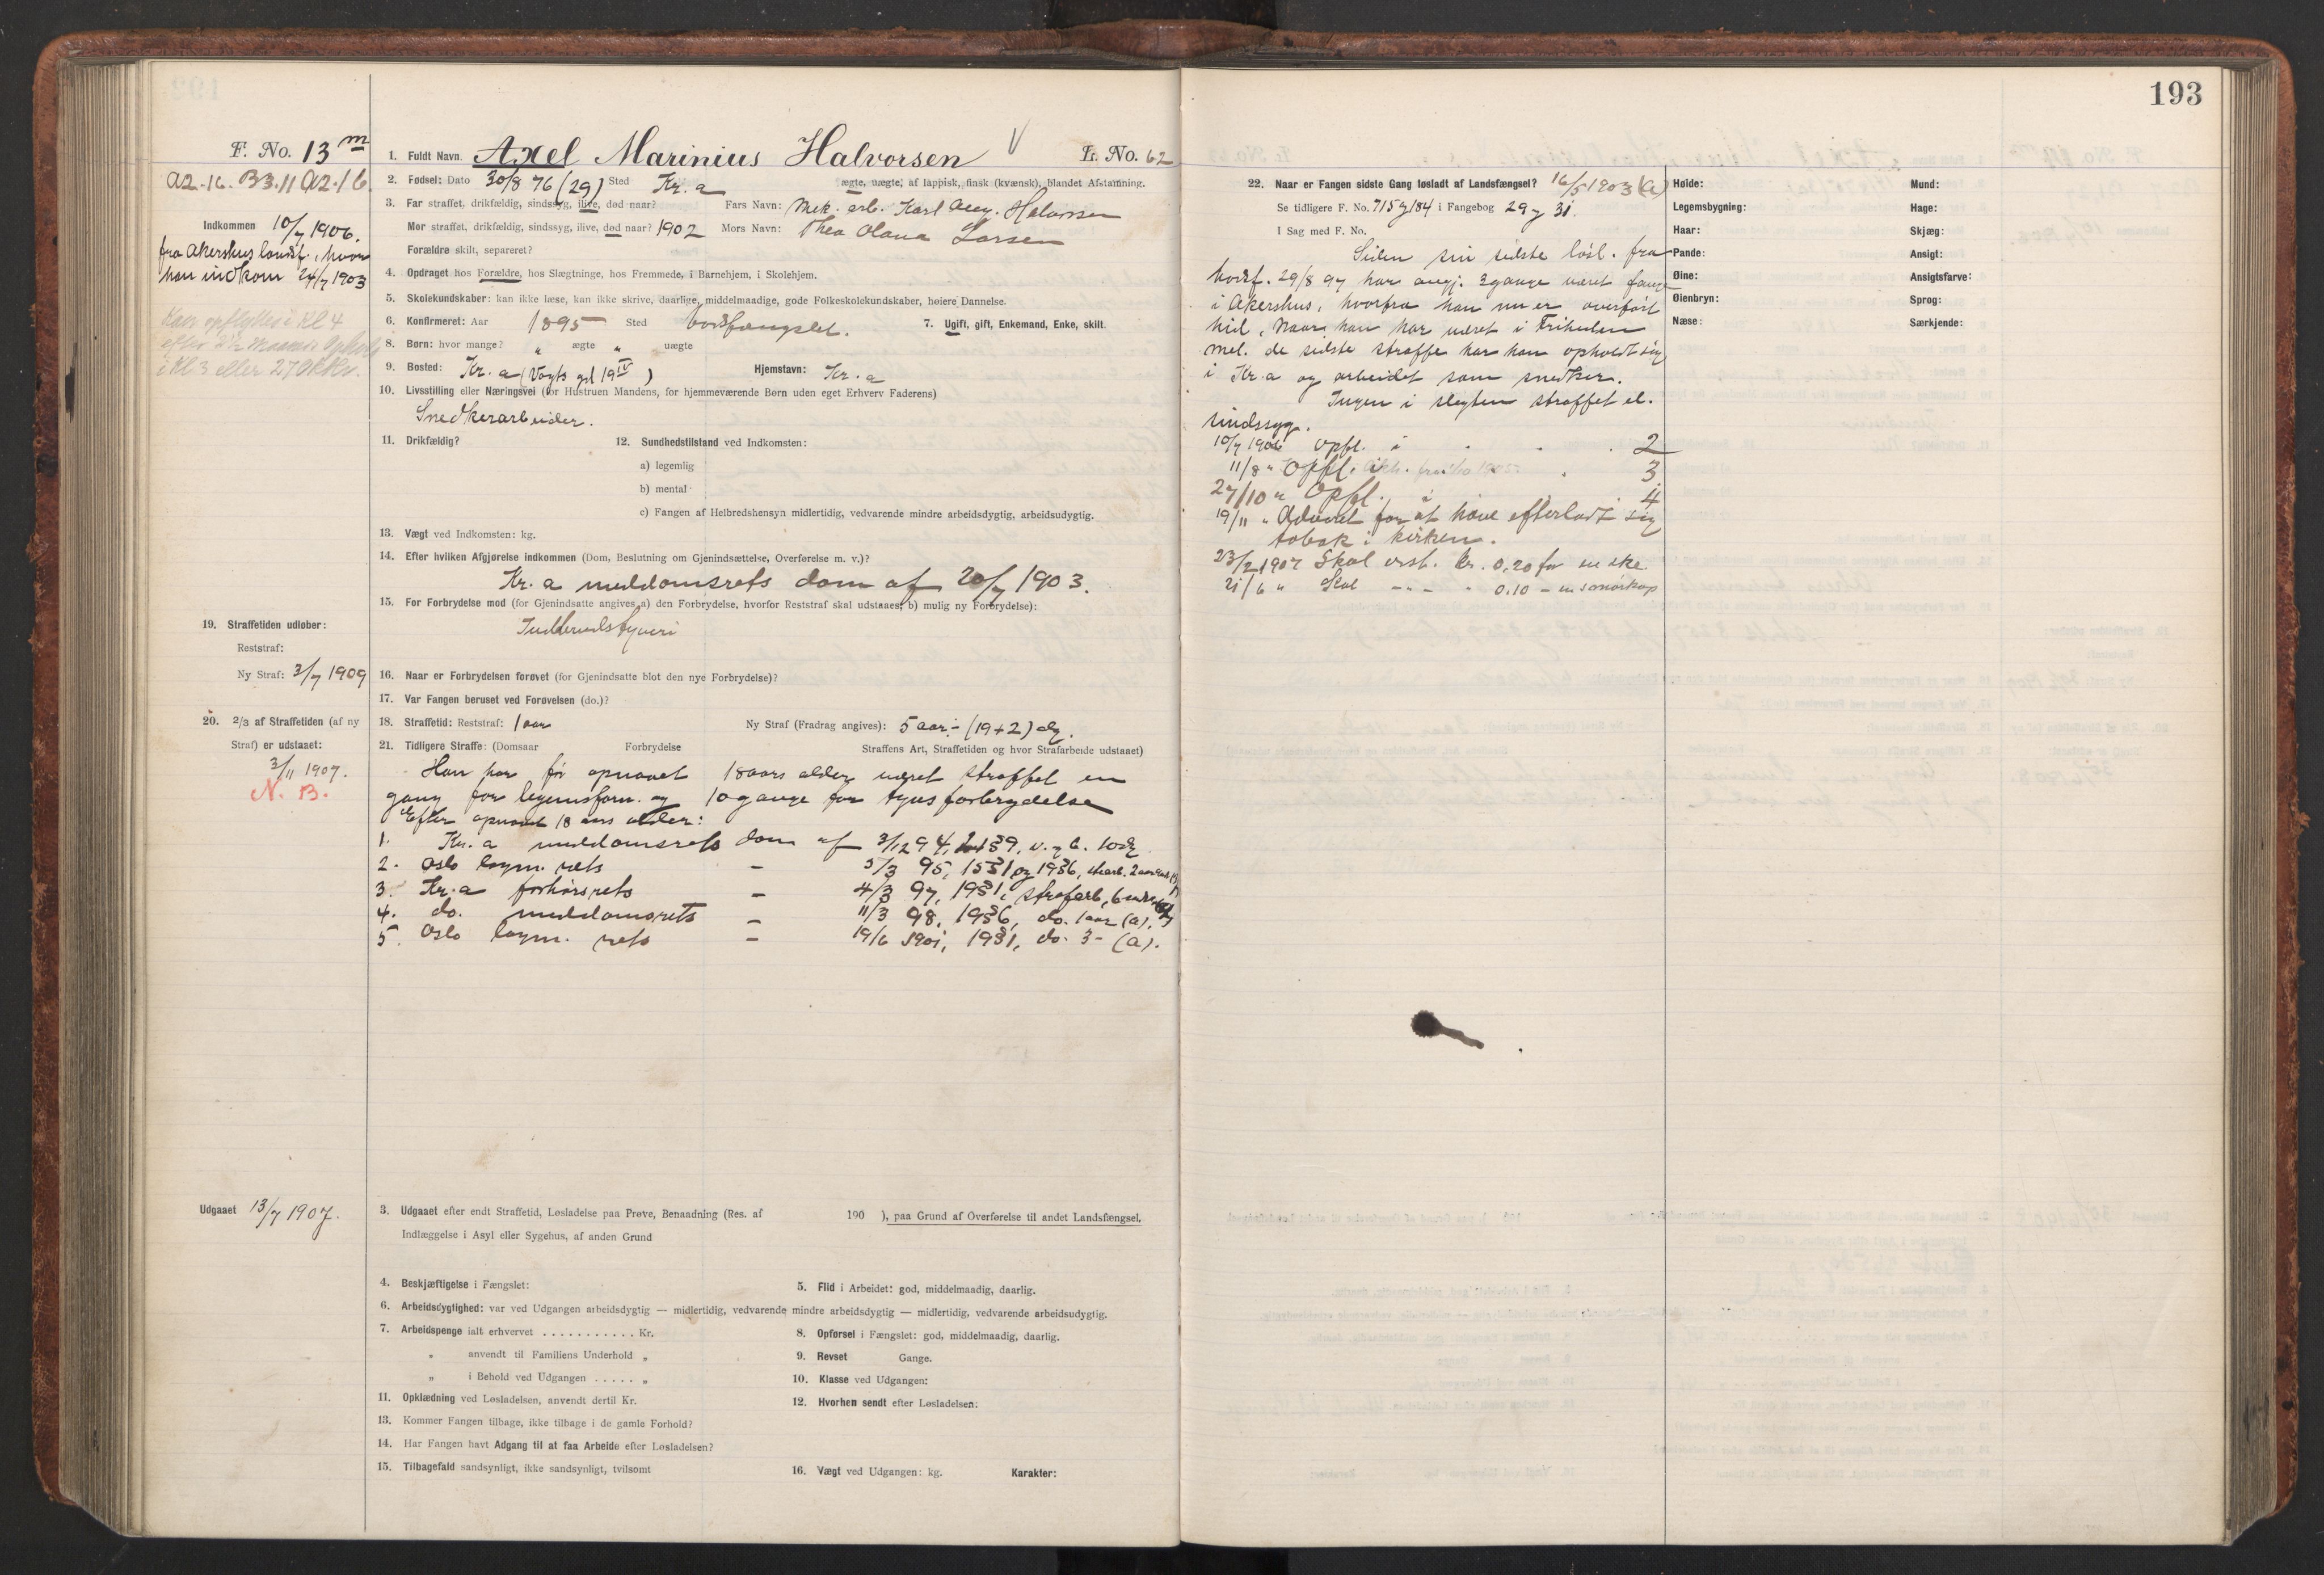 193
F. No. 13 m
1. Fuldt Navn. Axel Marinius Halvorsen V L. No. 62
A2.16. B3.11 A2.16.
2. Fødsel: Dato 30/8 76 (29) Sted Kr.a ægte, uægte, af lappisk, finsk (kvænsk), blandet Afstamning.
3. Far straffet, drikfældig, sindssyg, ilive, død naar? Fars Navn: Mek. arb. Karl Aug. Halvorsen
Indkommen 10/7 1906.
Mor straffet, drikfældig, sindssyg, ilive, død naar? 1902 Mors Navn: Thea Olava Larsen
fra Akershus landsf., hvor
Forældre skilt, separeret?
han indkom 24/7 1903
4. Opdraget hos Forældre, hos Slægtninge, hos Fremmede, i Barnehjem, i Skolehjem.
5. Skolekundskaber: kan ikke læse, kan ikke skrive, daarlige, middelmaadige, gode Folkeskolekundskaber, høiere Dannelse.
Kan opflyttes i Kl 4
6. Konfirmeret: Aar 1895 Sted bodsfængslet. 7. Ugift, gift, Enkemand, Enke, skilt.
efter 2½ Maaneds Ophold
8. Børn: hvor mange? „ ægte „ uægte
i Kl 3 eller 27 Oktbr.
9. Bosted: Kr.a (Vogts gd 19 IV) Hjemstavn: Kr.a
10. Livsstilling eller Næringsvei (for Hustruen Mandens, for hjemmeværende Børn uden eget Erhverv Faderens)
Snedkerarbeider.
11. Drikfældig? 12. Sundhedstilstand ved Indkomsten:
a) legemlig
b) mental
c) Fangen af Helbredshensyn midlertidig, vedvarende mindre arbeidsdygtig, arbeidsudygtig.
13. Vægt ved Indkomsten: kg.
14. Efter hvilken Afgjørelse indkommen (Dom, Beslutning om Gjenindsættelse, Overførelse m. v.)?
Kr.a meddomsrets dom af 20/7 1903.
15. For Forbrydelse mod (for Gjenindsatte angives a) den Forbrydelse, hvorfor Reststraf skal udstaaes, b) mulig ny Forbrydelse):
Indbrudstyveri
19. Straffetiden udløber:
Reststraf:
Ny Straf: 3/7 1909
16. Naar er Forbrydelsen forøvet (for Gjenindsatte blot den nye Forbrydelse)?
17. Var Fangen beruset ved Forøvelsen (do.)?
20. 2/3 af Straffetiden (af ny
Straf) er udstaaet:
3/11 1907.
N. B.
18. Straffetid: Reststraf: 1 aar Ny Straf (Fradrag angives): 5 aar ÷ (19+2) dg.
21. Tidligere Straffe: (Domsaar Forbrydelse Straffens Art, Straffetiden og hvor Strafarbeide udstaaet)
Han har før opnaaet 18 aars alder været straffet en
gang for legemsforn. og 10 gange for tyvsforbrydelse
Efter opnaaet 18 aars alder:
1. Kr.a meddomsrets dom af 3/12 94, v. og b. 10 dg.
2. Oslo lagm. rets — 5/3 95,
3. Kr.a forhørsrets — 4/3 97, 19§1, strafarb,
4. do. meddomsrets — 11/3 98, 19§6, do. 1 aar (a).
5. Oslo lagm. rets — 19/6 1901, 19§1, do. 3 - (a).
Udgaaet 13/7 1907.
3. Udgaaet efter endt Straffetid, Løsladelse paa Prøve, Benaadning (Res. af 190 ), paa Grund af Overførelse til andet Landsfængsel,
Indlæggelse i Asyl eller Sygehus, af anden Grund
4. Beskjæftigelse i Fængslet: 5. Flid i Arbeidet: god, middelmaadig, daarlig.
6. Arbeidsdygtighed: var ved Udgangen arbeidsdygtig — midlertidig, vedvarende mindre arbeidsdygtig — midlertidig, vedvarende arbeidsudygtig.
7. Arbeidspenge ialt erhvervet . . . . . . . . . . . Kr. 8. Opførsel i Fængslet: god, middelmaadig, daarlig.
„ anvendt til Familiens Underhold „ 9. Revset Gange.
„ i Behold ved Udgangen . . . . . „ 10. Klasse ved Udgangen:
11. Opklædning ved Løsladelsen, anvendt dertil Kr. 12. Hvorhen sendt efter Løsladelsen:
13. Kommer Fangen tilbage, ikke tilbage i de gamle Forhold?
14. Har Fangen havt Adgang til at faa Arbeide efter Løsladelsen?
15. Tilbagefald sandsynligt, ikke sandsynligt, tvilsomt 16. Vægt ved Udgangen: kg. Karakter:
22. Naar er Fangen sidste Gang løsladt af Landsfængsel? 16/5 1903 (a)
Se tidligere F. No. 715 og 184 i Fangebog 29 og 31.
I Sag med F. No.
Siden sin sidste løsl. fra
bodsf. 29/8 97 har angj. 3 gange været fange
i Akershus, hvorfra han nu er overført
hid. Naar han har været i Friheden
mel. de sidste straffe har han opholdt sig
i Kr.a og arbeidet som snedker.
Ingen i slegten straffet el.
sindssyg.
10/7 1906 Opfl. i . . . 2
11/8 „ Opfl. i 3
27/10 „ Opfl. i 4
19/11 „ Advaret for at have efterladt sig
tobak i kirken.
23/2 1907 Skal erst. kr. 0.20 for en ske
21/6 „ Skal - „ - „ 0.10 - en smørkop
Høide: Mund:
Legemsbygning: Hage:
Haar: Skjæg:
Pande: Ansigt:
Øine: Ansigtsfarve:
Øienbryn: Sprog:
Næse: Særkjende: